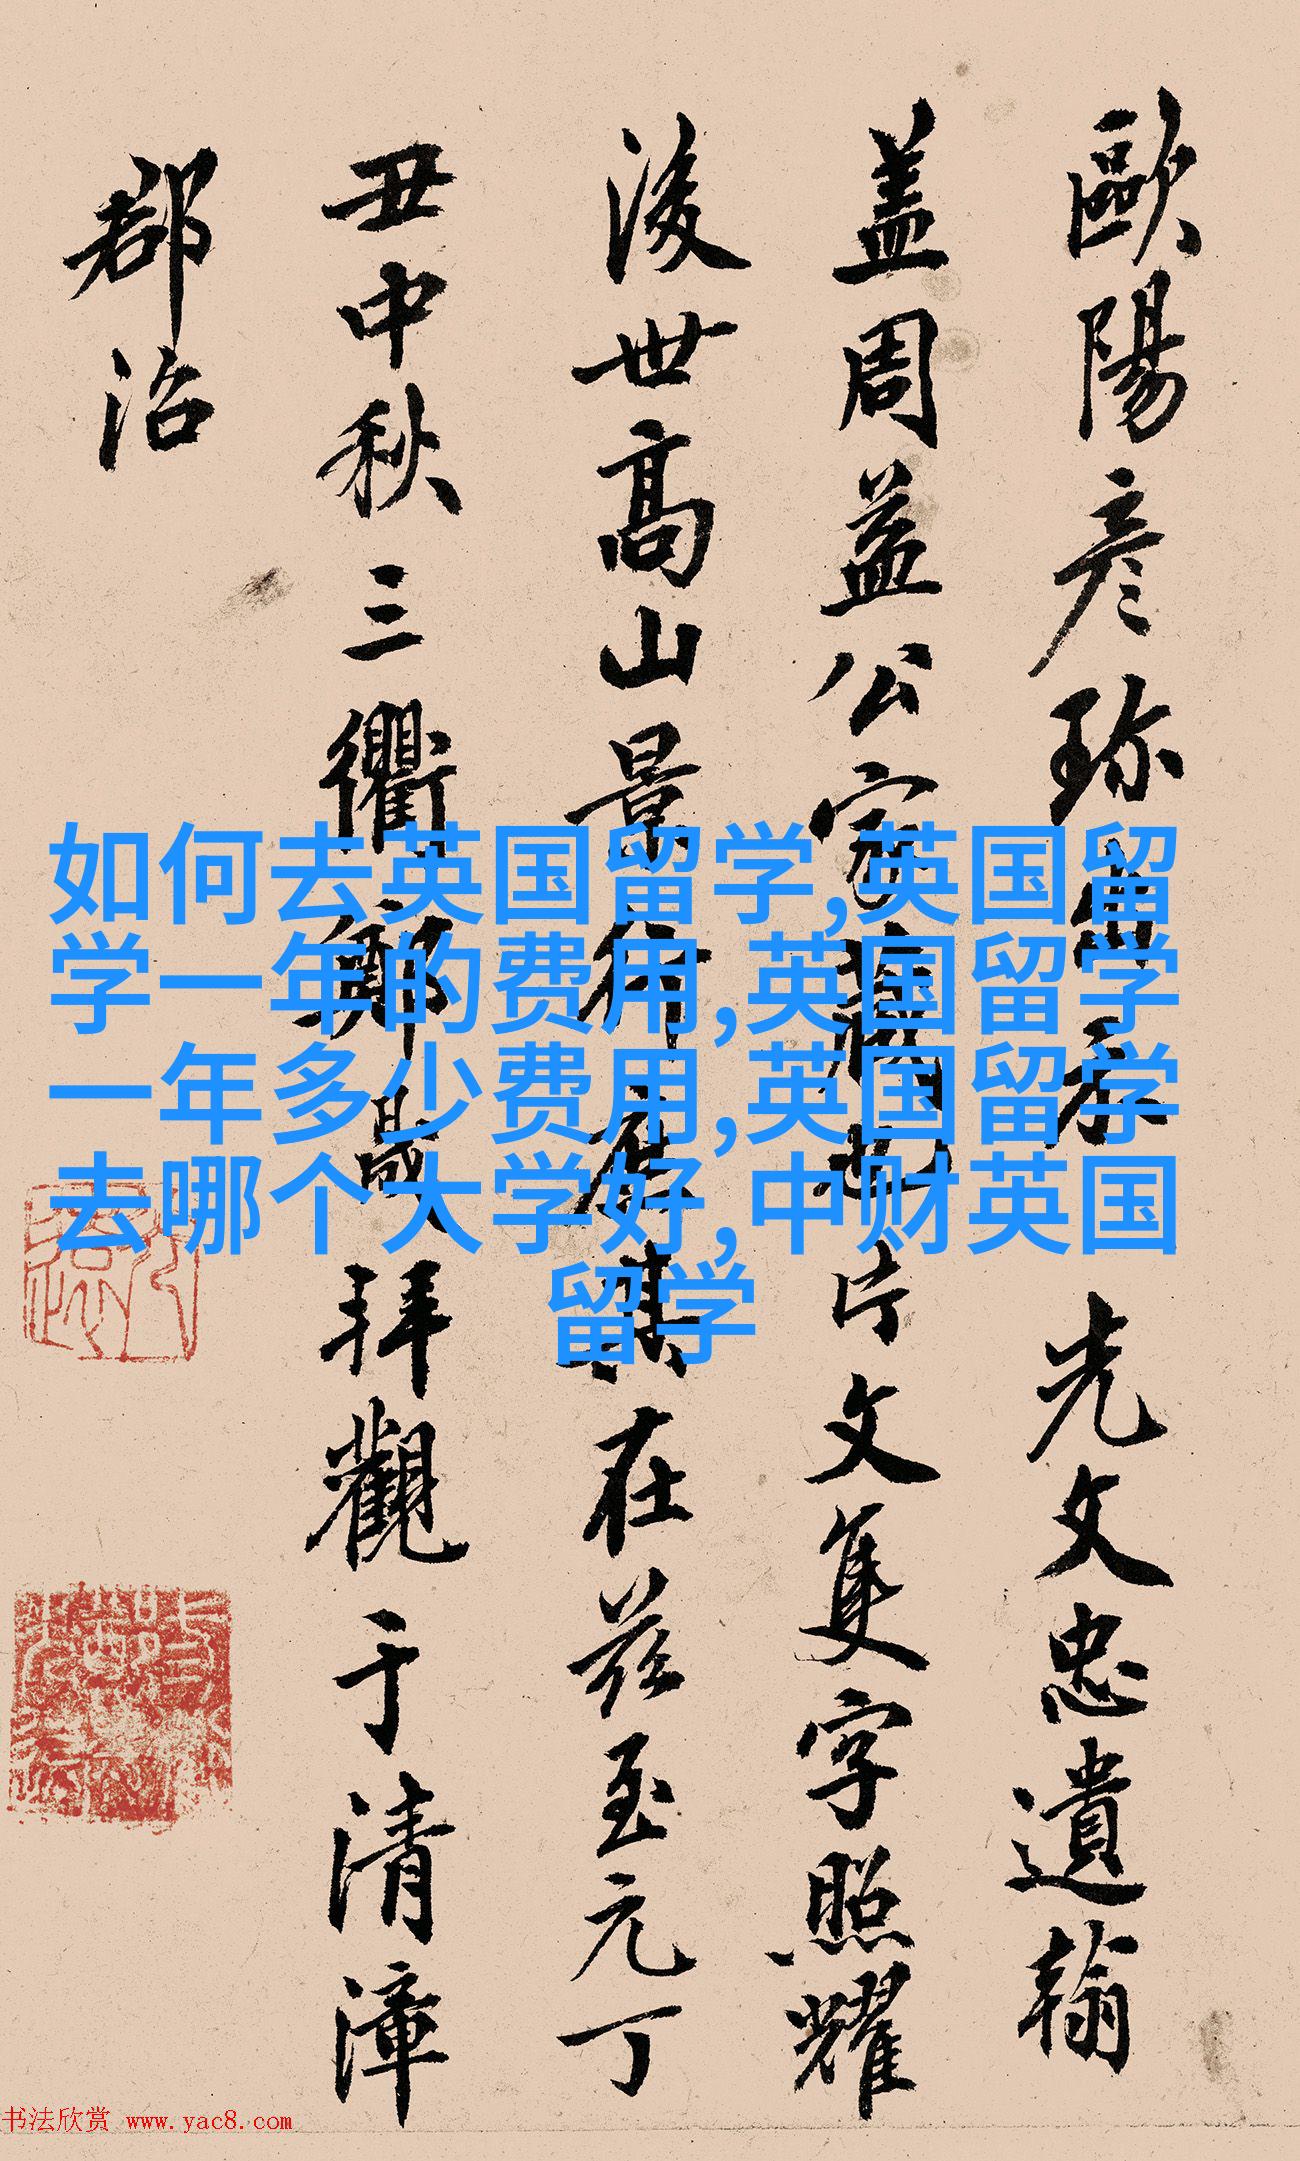 歐陽彦珎出示 光文忠遺翰
盖周益公家藏也片文隻字照耀
後世高山景行庶其在兹至元丁
丑中秋三衢鄭晟拜觀于清漳
郡治
如何去英国留学,英国留
学一年的费用,英国留学
一年多少费用,英国留学
去哪个大学好,中财英国
留学
书法欣赏 www.yac8.com